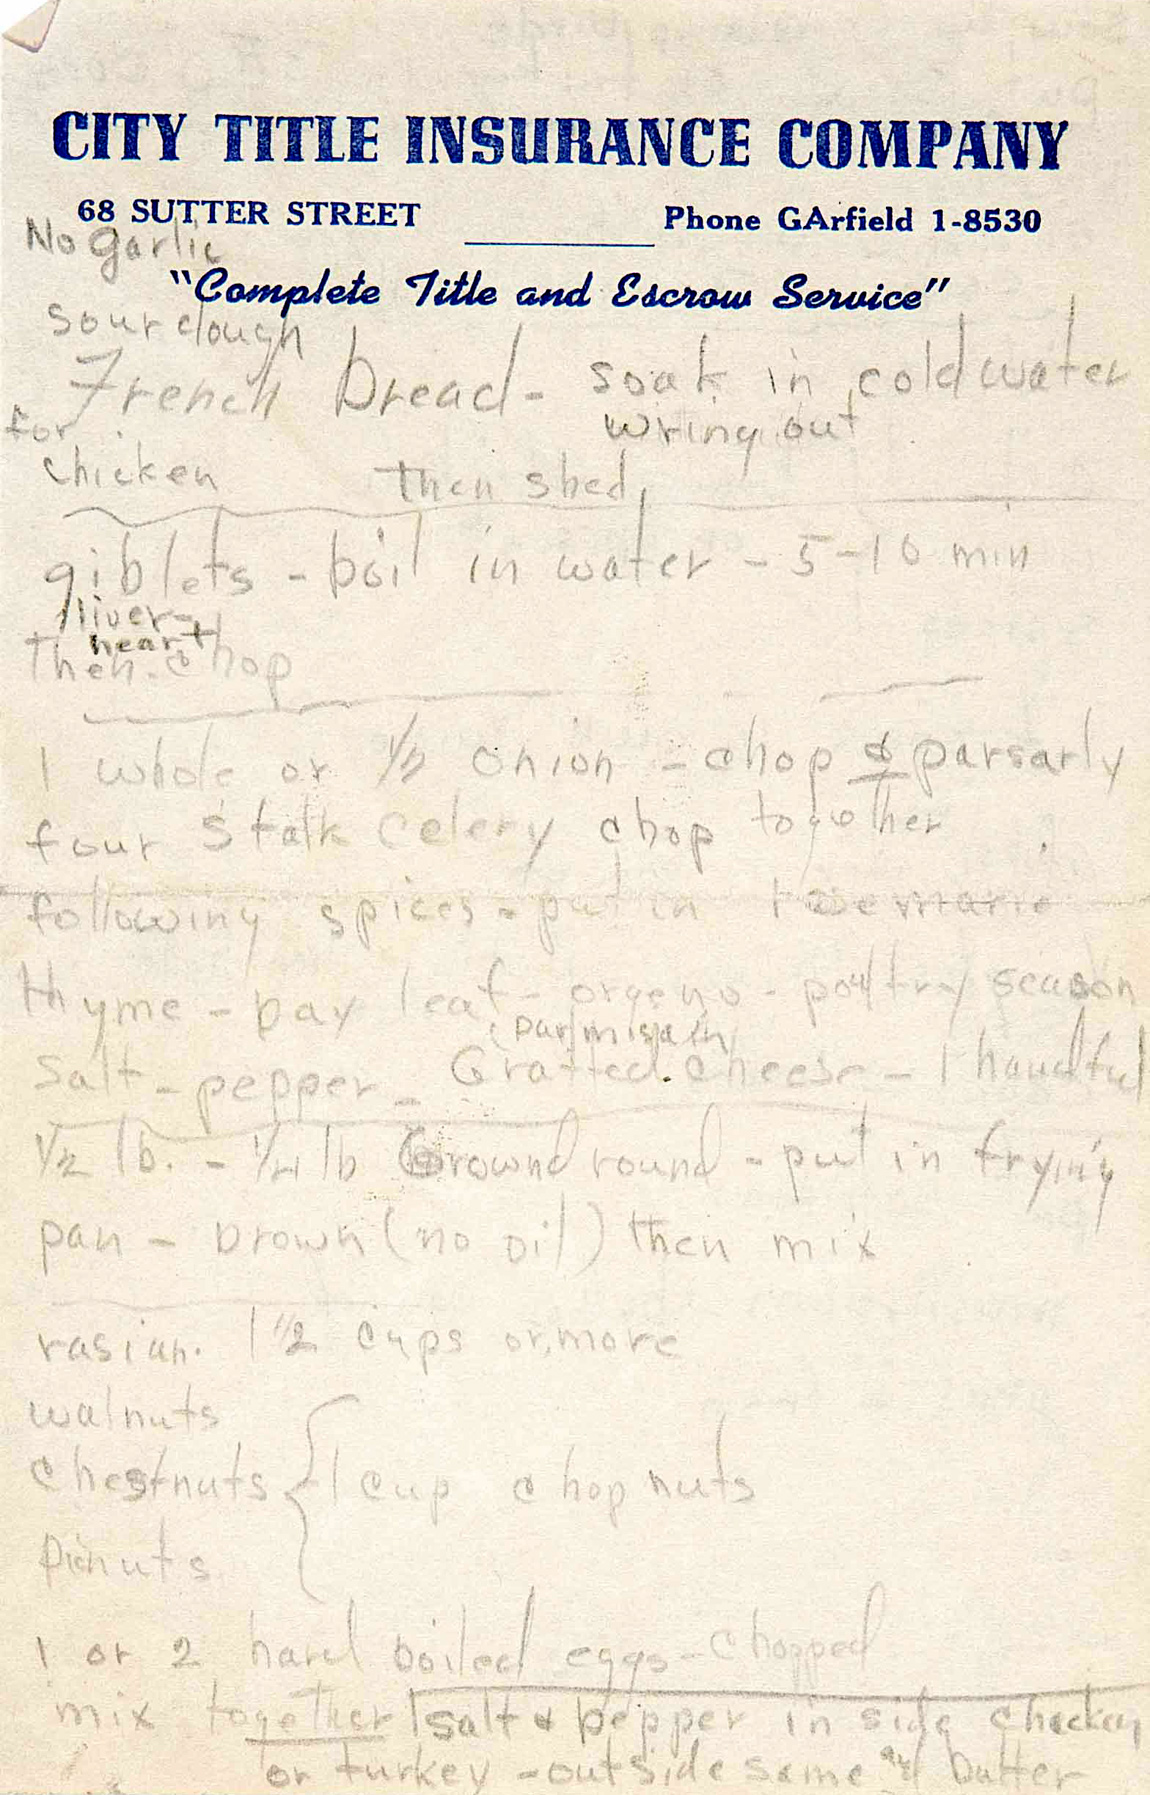 CITY TITLE INSURANCE COMPANY
68 SUTTER STREET Phone GArfield 1-8530
No garlic
"Complete Title and Escrow Service"
sour dough
French bread - soak in cold water
for wring out
chicken then shed
giblets - boil in water - 5-10 min
liver -
heart
then chop
1 whole or 1/2 onion - chop & parsarly
four stalk celery chop together
following spices - put in rosemarie
thyme - bay leaf - orgeno - poultry season
(parmisain)
Salt - pepper - Gratted cheese - 1 handful
1/2 lb. - 1/4 lb Grownd round - put in frying
pan - brown (no oil) then mix
rasian. 1 1/2 cups or more
walnuts
chestnuts { 1 cup chop nuts
pinuts
1 or 2 hard boiled eggs - chopped
mix together salt & pepper in side chicken
or turkey - outside same and butter